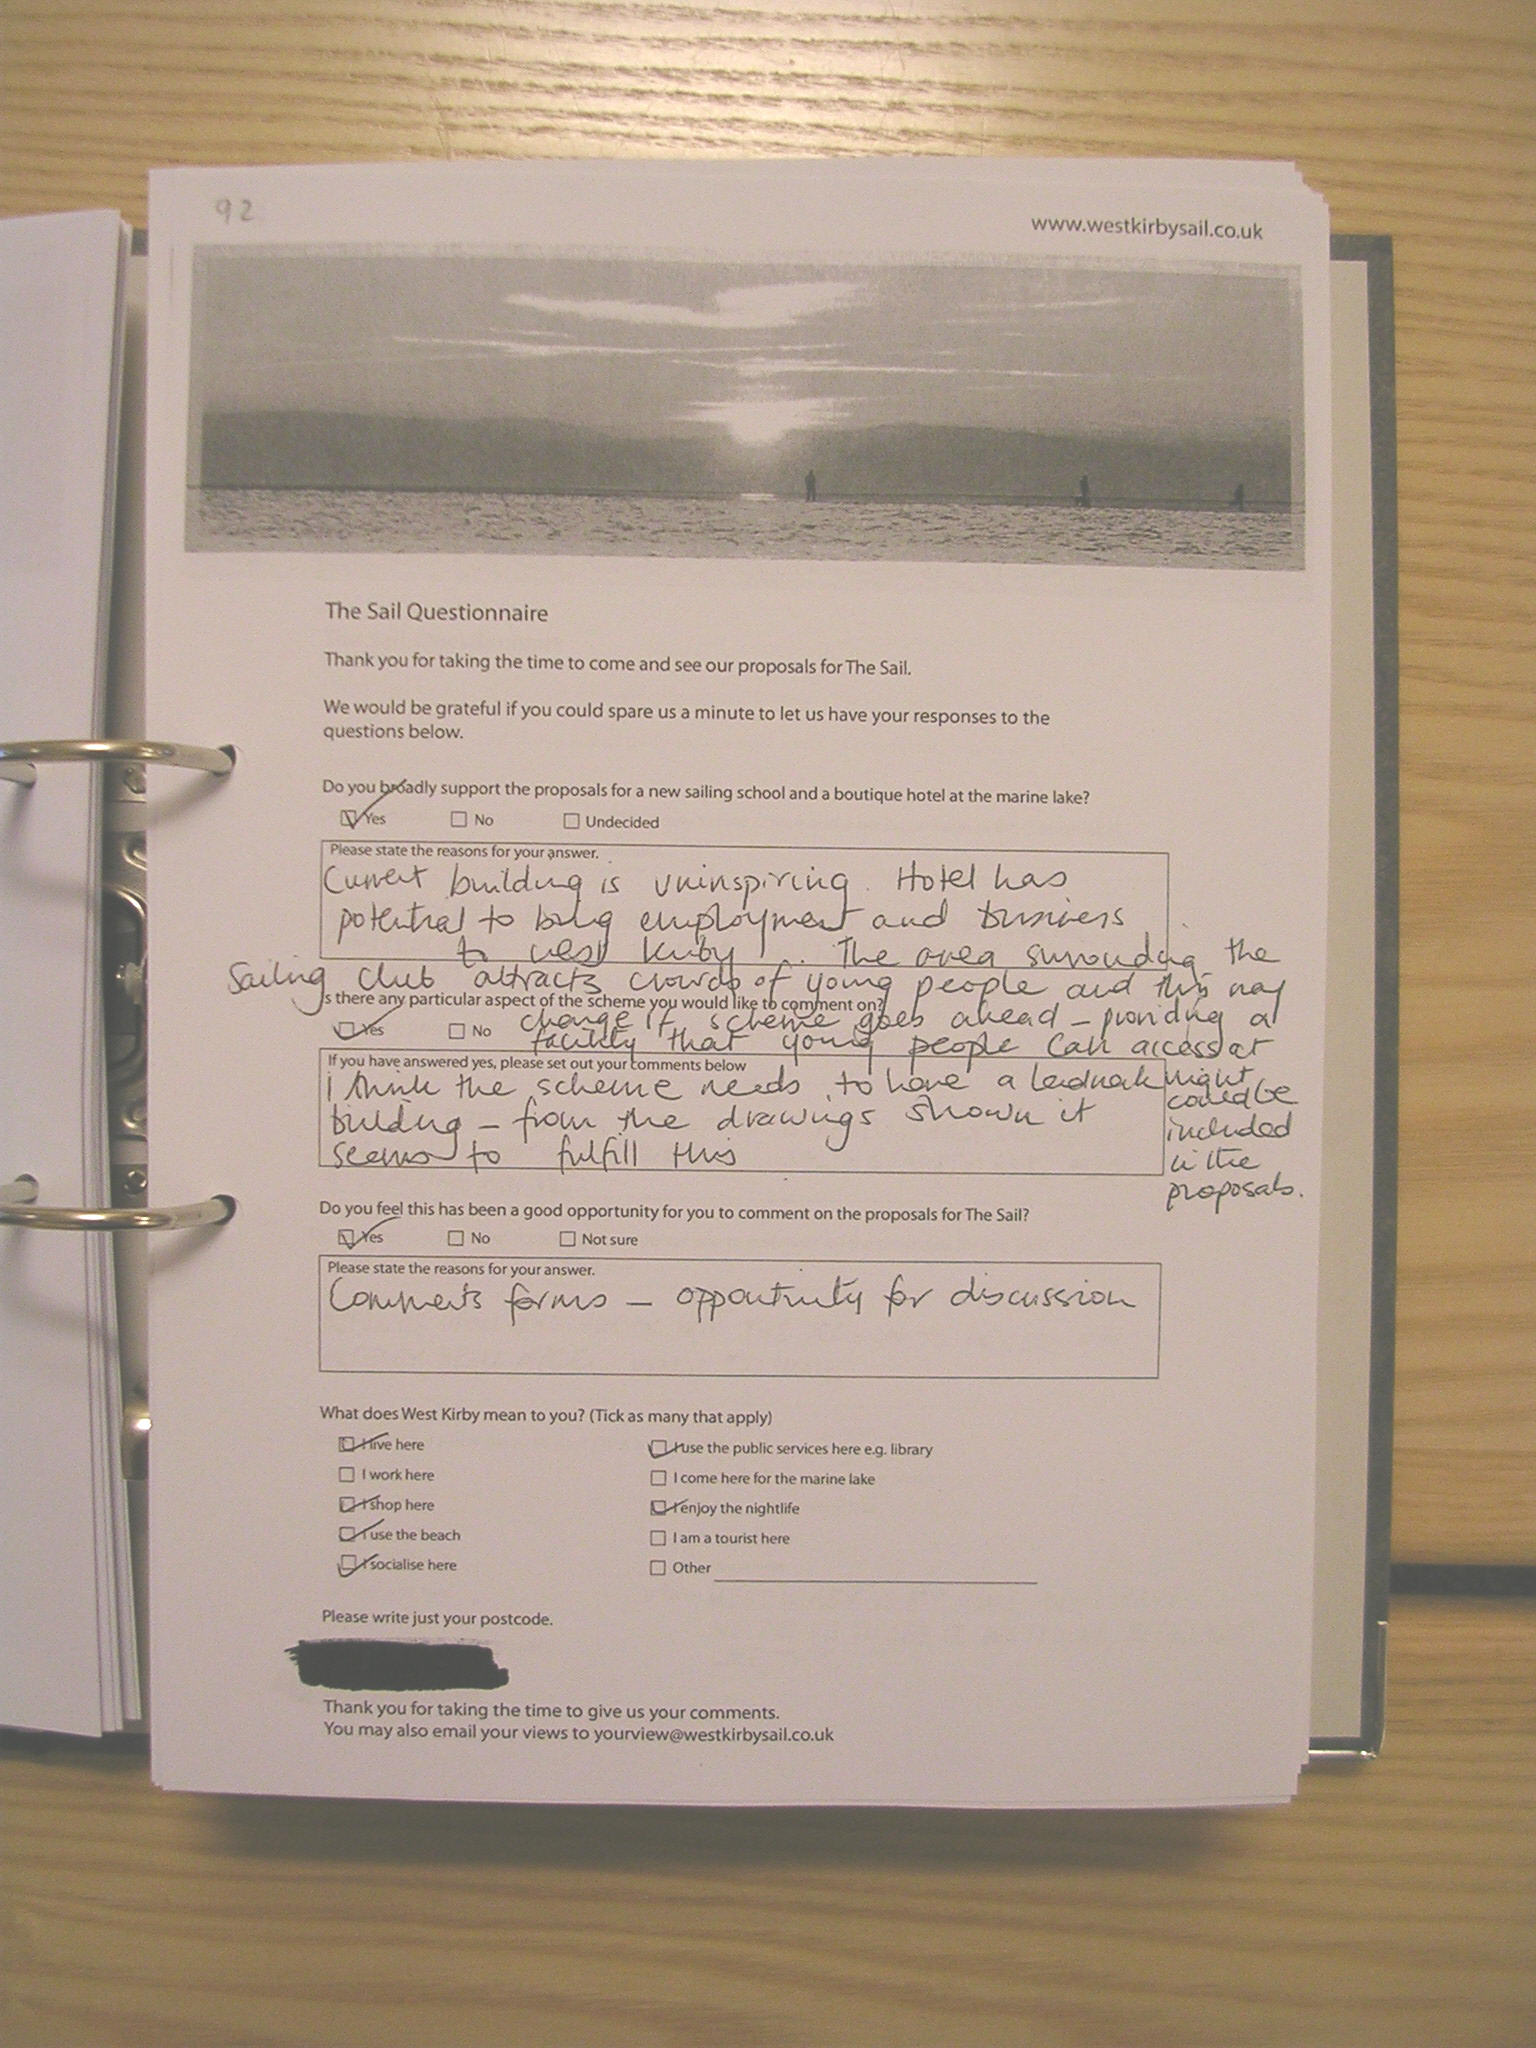 92
www.westkirbysail.co.uk
The Sail Questionnaire
Thank you for taking the time to come and see our proposals for The Sail.
We would be grateful if you could spare us a minute to let us have your responses to the
questions below.
Do you broadly support the proposals for a new sailing school and a boutique hotel at the marine lake?
Yes No Undecided
Please state the reasons for your answer.
Current building is uninspiring. Hotel has
potential to bring employment and business
to West Kirby. The area surrounding the
Sailing Club attracts crowds of young people and this may
Is there any particular aspect of the scheme you would like to comment on?
change if scheme goes ahead - providing a
Yes No
facility that young people can access at
If you have answered yes, please set out your comments below
night
could be
included
in the
proposals.
I think the scheme needs to have a landmark
building - from the drawings shown it
seems to fulfill this
Do you feel this has been a good opportunity for you to comment on the proposals for The Sail?
Yes No Not sure
Please state the reasons for your answer.
Comments forms - opportunity for discussion
What does West Kirby mean to you? (Tick as many that apply)
I live here I use the public services here e.g. library
I work here I come here for the marine lake
I shop here I enjoy the nightlife
I use the beach I am a tourist here
I socialise here Other
Please write just your postcode.
Thank you for taking the time to give us your comments.
You may also email your views to yourview@westkirbysail.co.uk